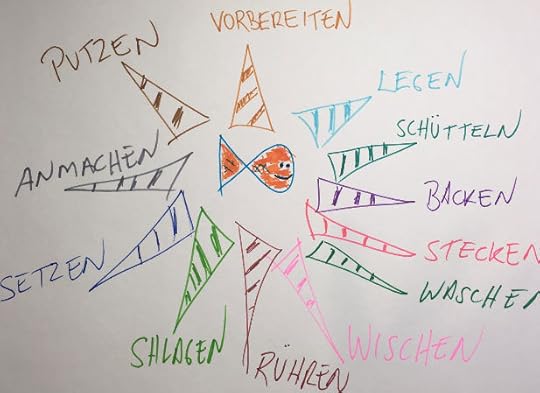 VORBEREITEN
PUTZEN
LEGEN
SCHÜTTELN
ANMACHEN
BACKEN
STECKEN
SETZEN
WASCHEN
SHLAGEN
WISCHEN
RÜHREN